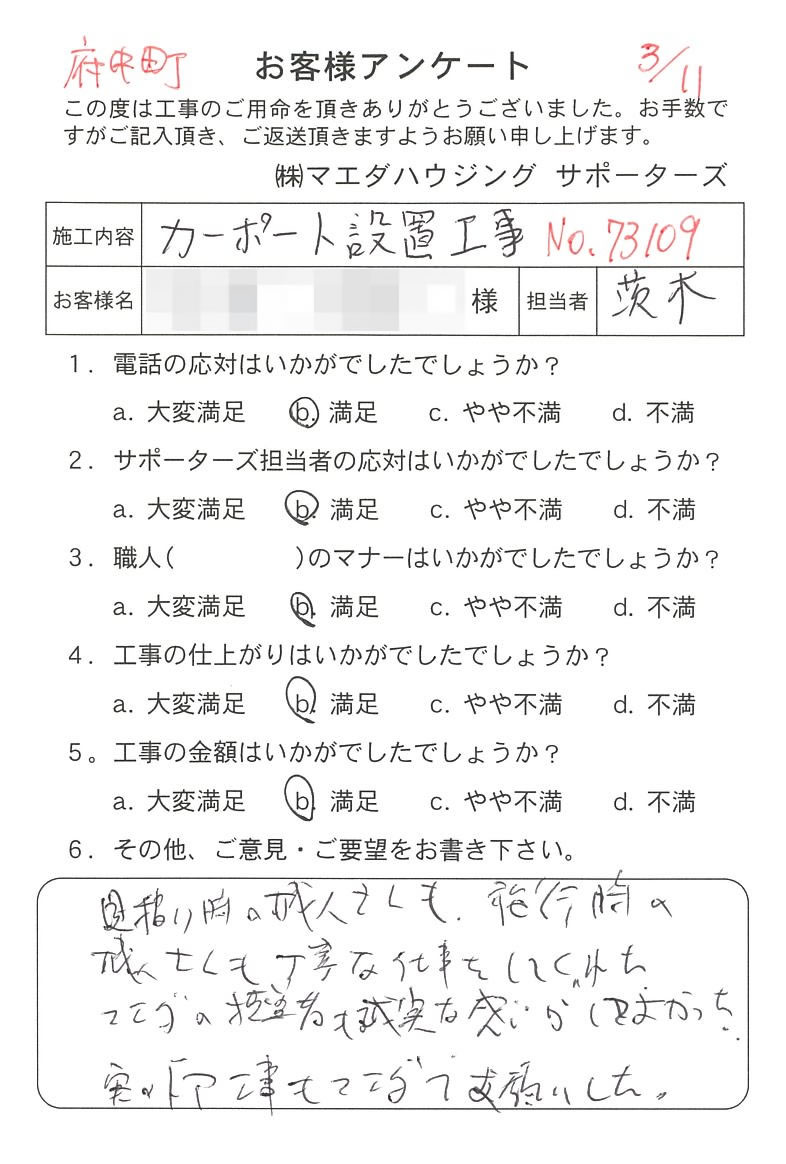 府中町 お客様アンケート 3/11
この度は工事のご用命を頂きありがとうございました。お手数で
すがご記入頂き、ご返送頂きますようお願い申し上げます。
㈱マエダハウジング サポーターズ
施工内容 カーポート設置工事 No.73109
お客様名 様 担当者 茨木
1. 電話の応対はいかがでしたでしょうか?
a. 大変満足 b. 満足 c. やや不満 d. 不満
2. サポーターズ担当者の応対はいかがでしたでしょうか?
a. 大変満足 b. 満足 c. やや不満 d. 不満
3. 職人( )のマナーはいかがでしたでしょうか?
a. 大変満足 b. 満足 c. やや不満 d. 不満
4. 工事の仕上がりはいかがでしたでしょうか?
a. 大変満足 b. 満足 c. やや不満 d. 不満
5。工事の金額はいかがでしたでしょうか?
a. 大変満足 b. 満足 c. やや不満 d. 不満
6. その他、ご意見・ご要望をお書き下さい。
見積り時の職人さんも、施行時の
職人さんも丁寧な仕事をしてくれた
マエダの担当者も誠実な感じがしてよかった。
実のドア工事もマエダでお願いした。